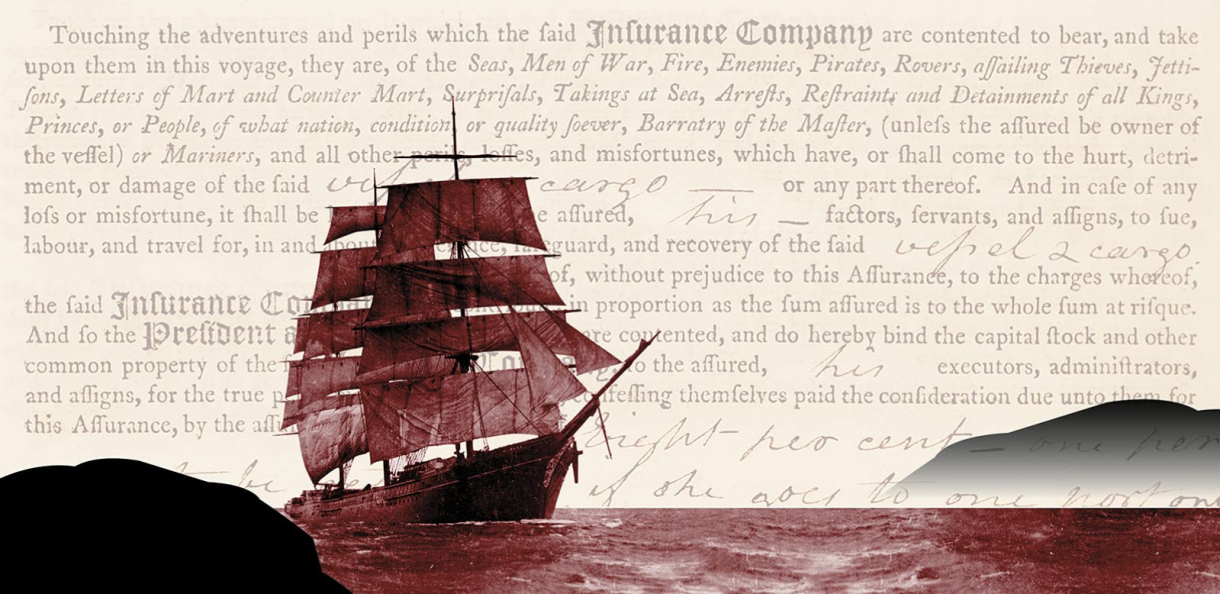 Touching the adventures and perils which the ſaid Inſurance Company are contented to bear, and take
upon them in this voyage, they are, of the Seas, Men of War, Fire, Enemies, Pirates, Rovers, aſſailing Thieves, Jetti-
ſons, Letters of Mart and Counter Mart, Surpriſals, Takings at Sea, Arreſts, Reſtraints and Detainments of all Kings,
Princes, or People, of what nation, condition or quality ſoever, Barratry of the Maſter, (unleſs the aſſured be owner of
the veſſel) or Mariners, and all other perils, loſſes, and misfortunes, which have, or ſhall come to the hurt, detri-
ment, or damage of the ſaid cargo — or any part thereof. And in caſe of any
loſs or misfortune, it ſhall be aſſured, his — factors, ſervants, and aſſigns, to ſue,
labour, and travel for, in and about and recovery of the ſaid veſſel & cargo.
of, without prejudice to this Aſſurance, to the charges whereof,
the ſaid Inſurance in proportion as the ſum aſſured is to the whole ſum at riſque.
And ſo the Preſident are contented, and do hereby bind the capital ſtock and other
common property of the to the aſſured, his executors, adminiſtrators,
and aſſigns, for the true confeſſing themſelves paid the conſideration due unto them for
this Aſſurance, by the
Eight per cent — one per
to be if she goes to one port